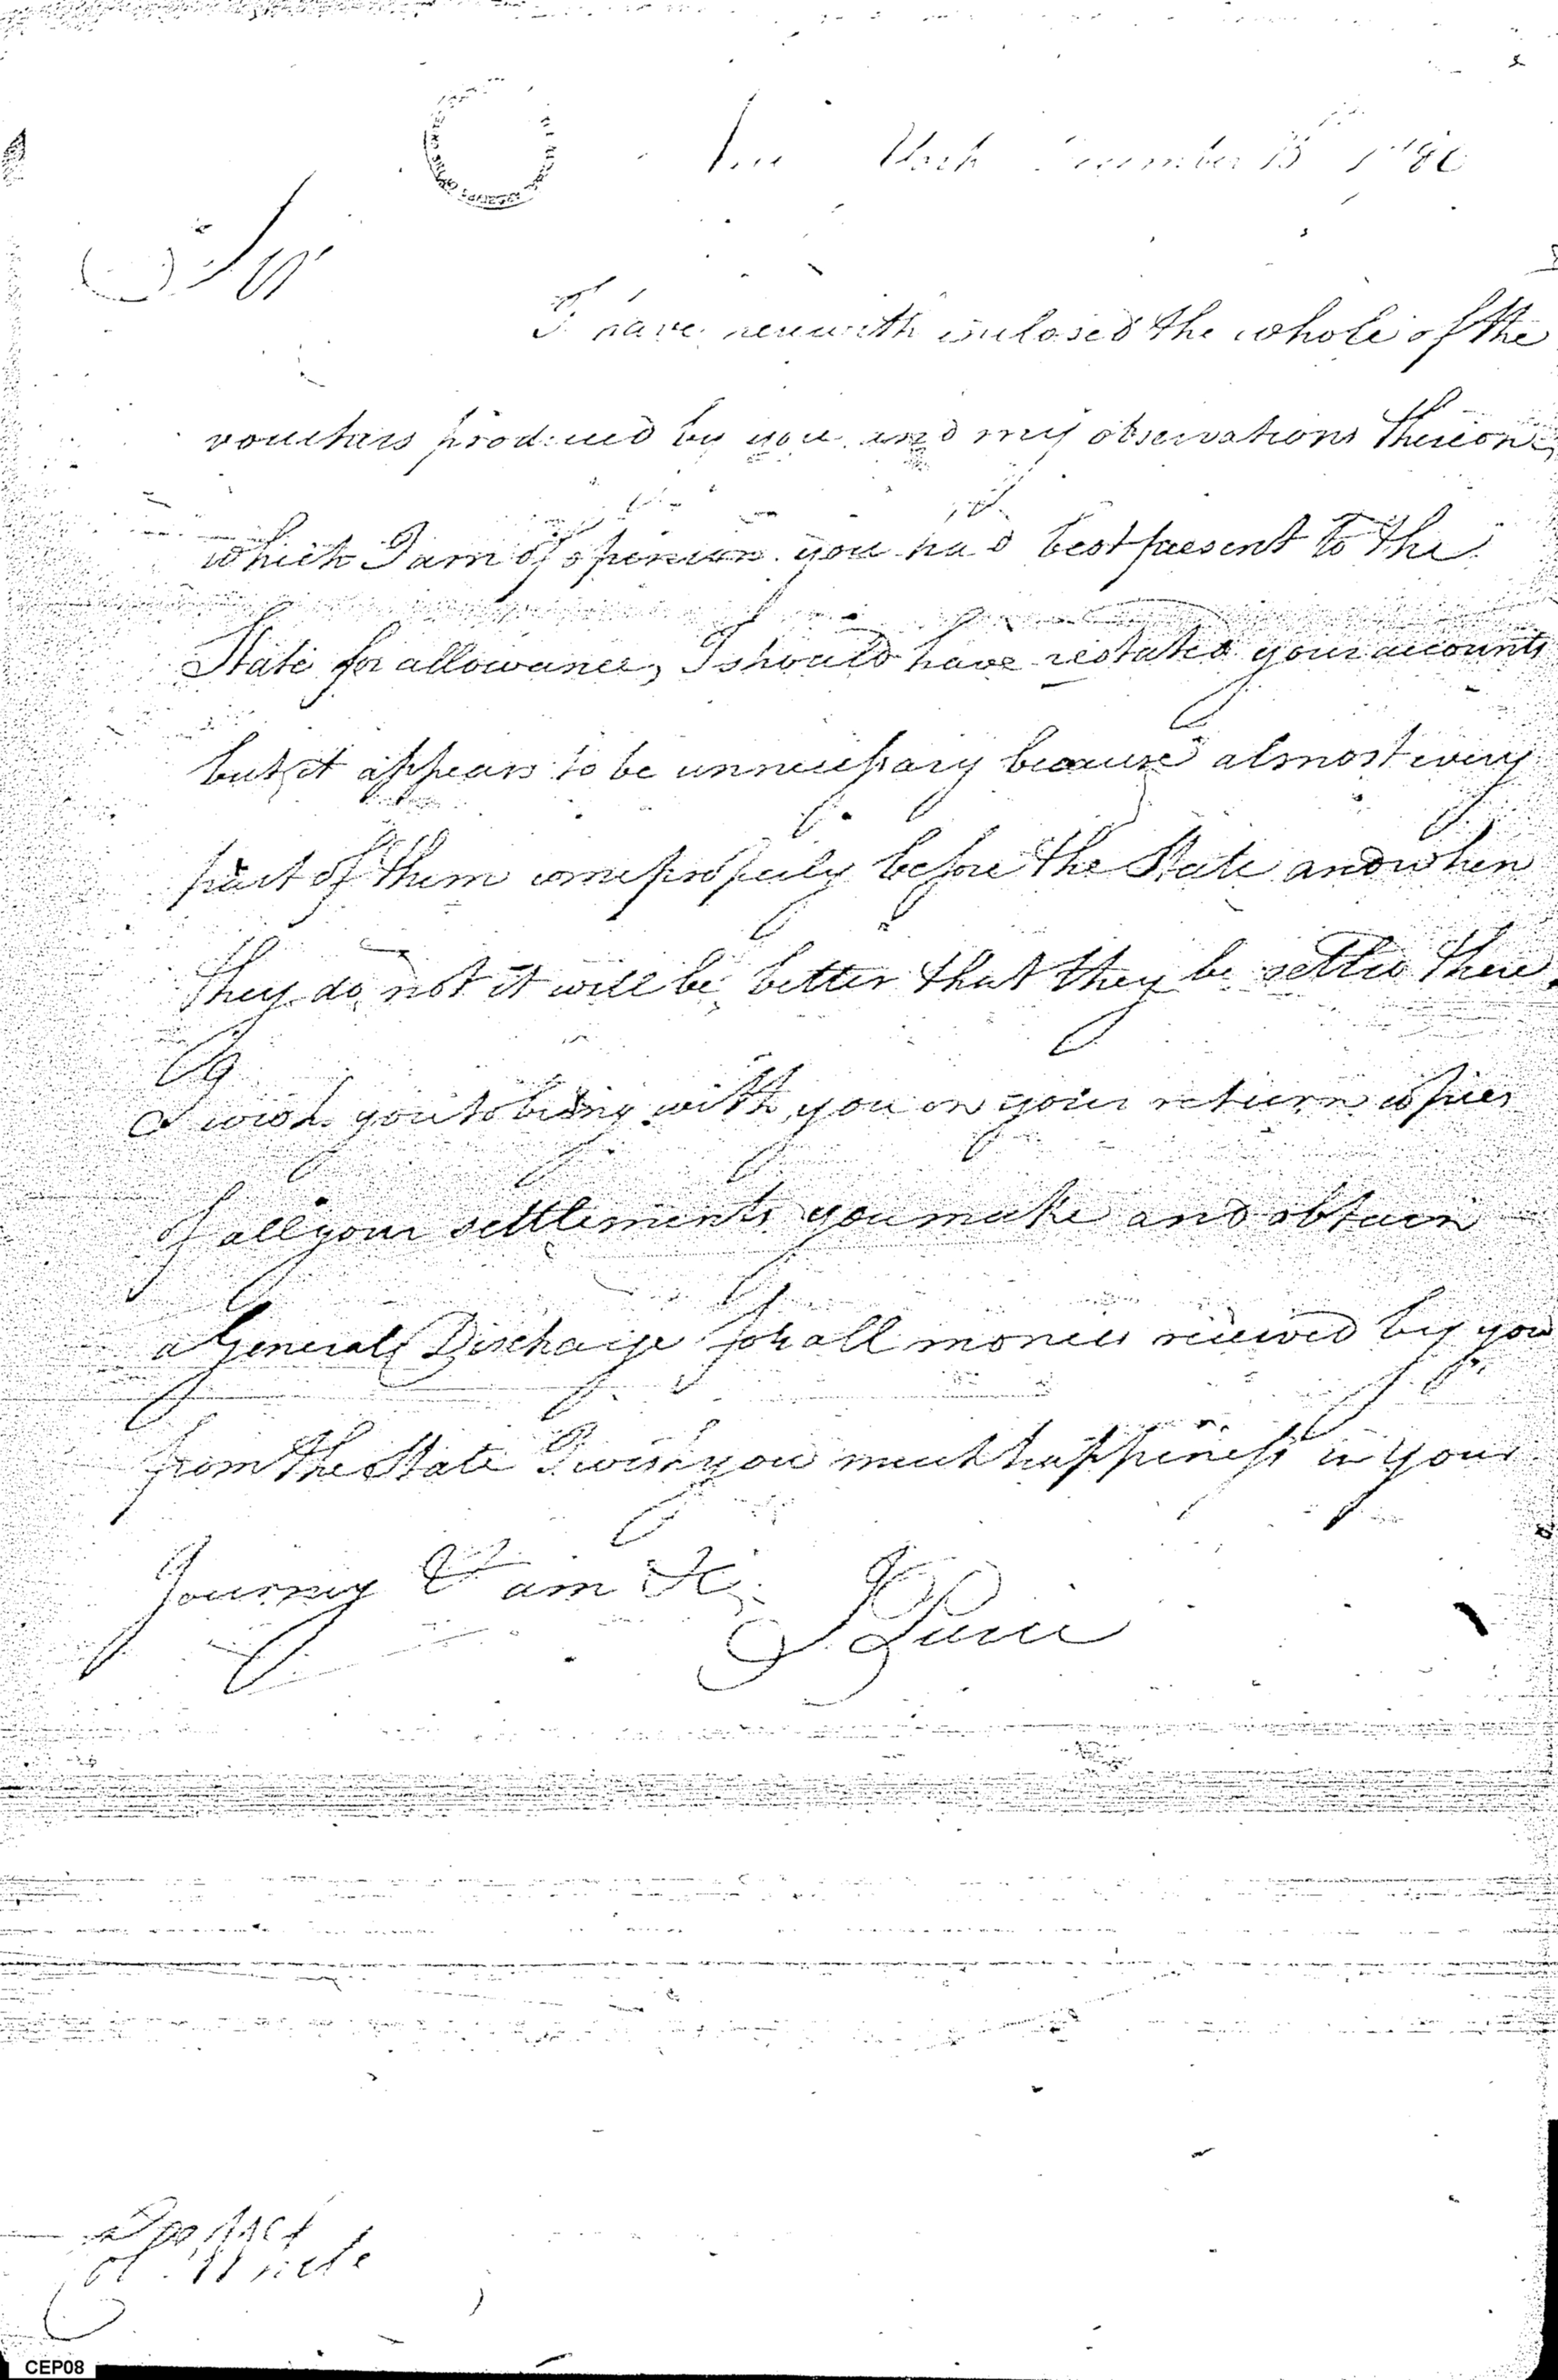 New York December 15 1786
Sir
I have herewith inclosed the whole of the
vouchers produced by you and my observations thereon
which I am of opinion you had best present to the
State for allowance, I should have restated your accounts
but it appears to be unnecessary because almost every
part of them come properly before the State and when
they do not it will be better that they be settled there.
I wish you to bring with you on your return copies
of all your settlements you make and obtain
a General Discharge for all monies received by you
from the State I wish you much happiness in your
Journey & am &c.
J Pierce
CEP08